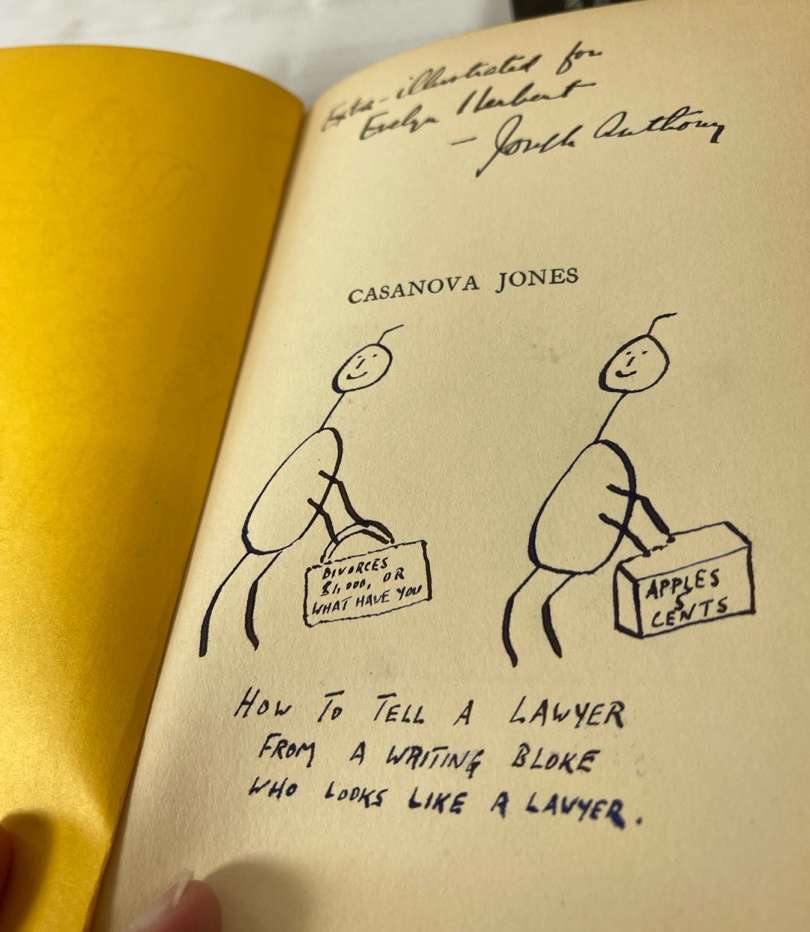 Extra-illustrated for
Evelyn Herbert
- Joseph Anthony
CASANOVA JONES
DIVORCES
$1,000, OR
WHAT HAVE YOU
APPLES
5
CENTS
HOW TO TELL A LAWYER
FROM A WRITING BLOKE
WHO LOOKS LIKE A LAWYER.